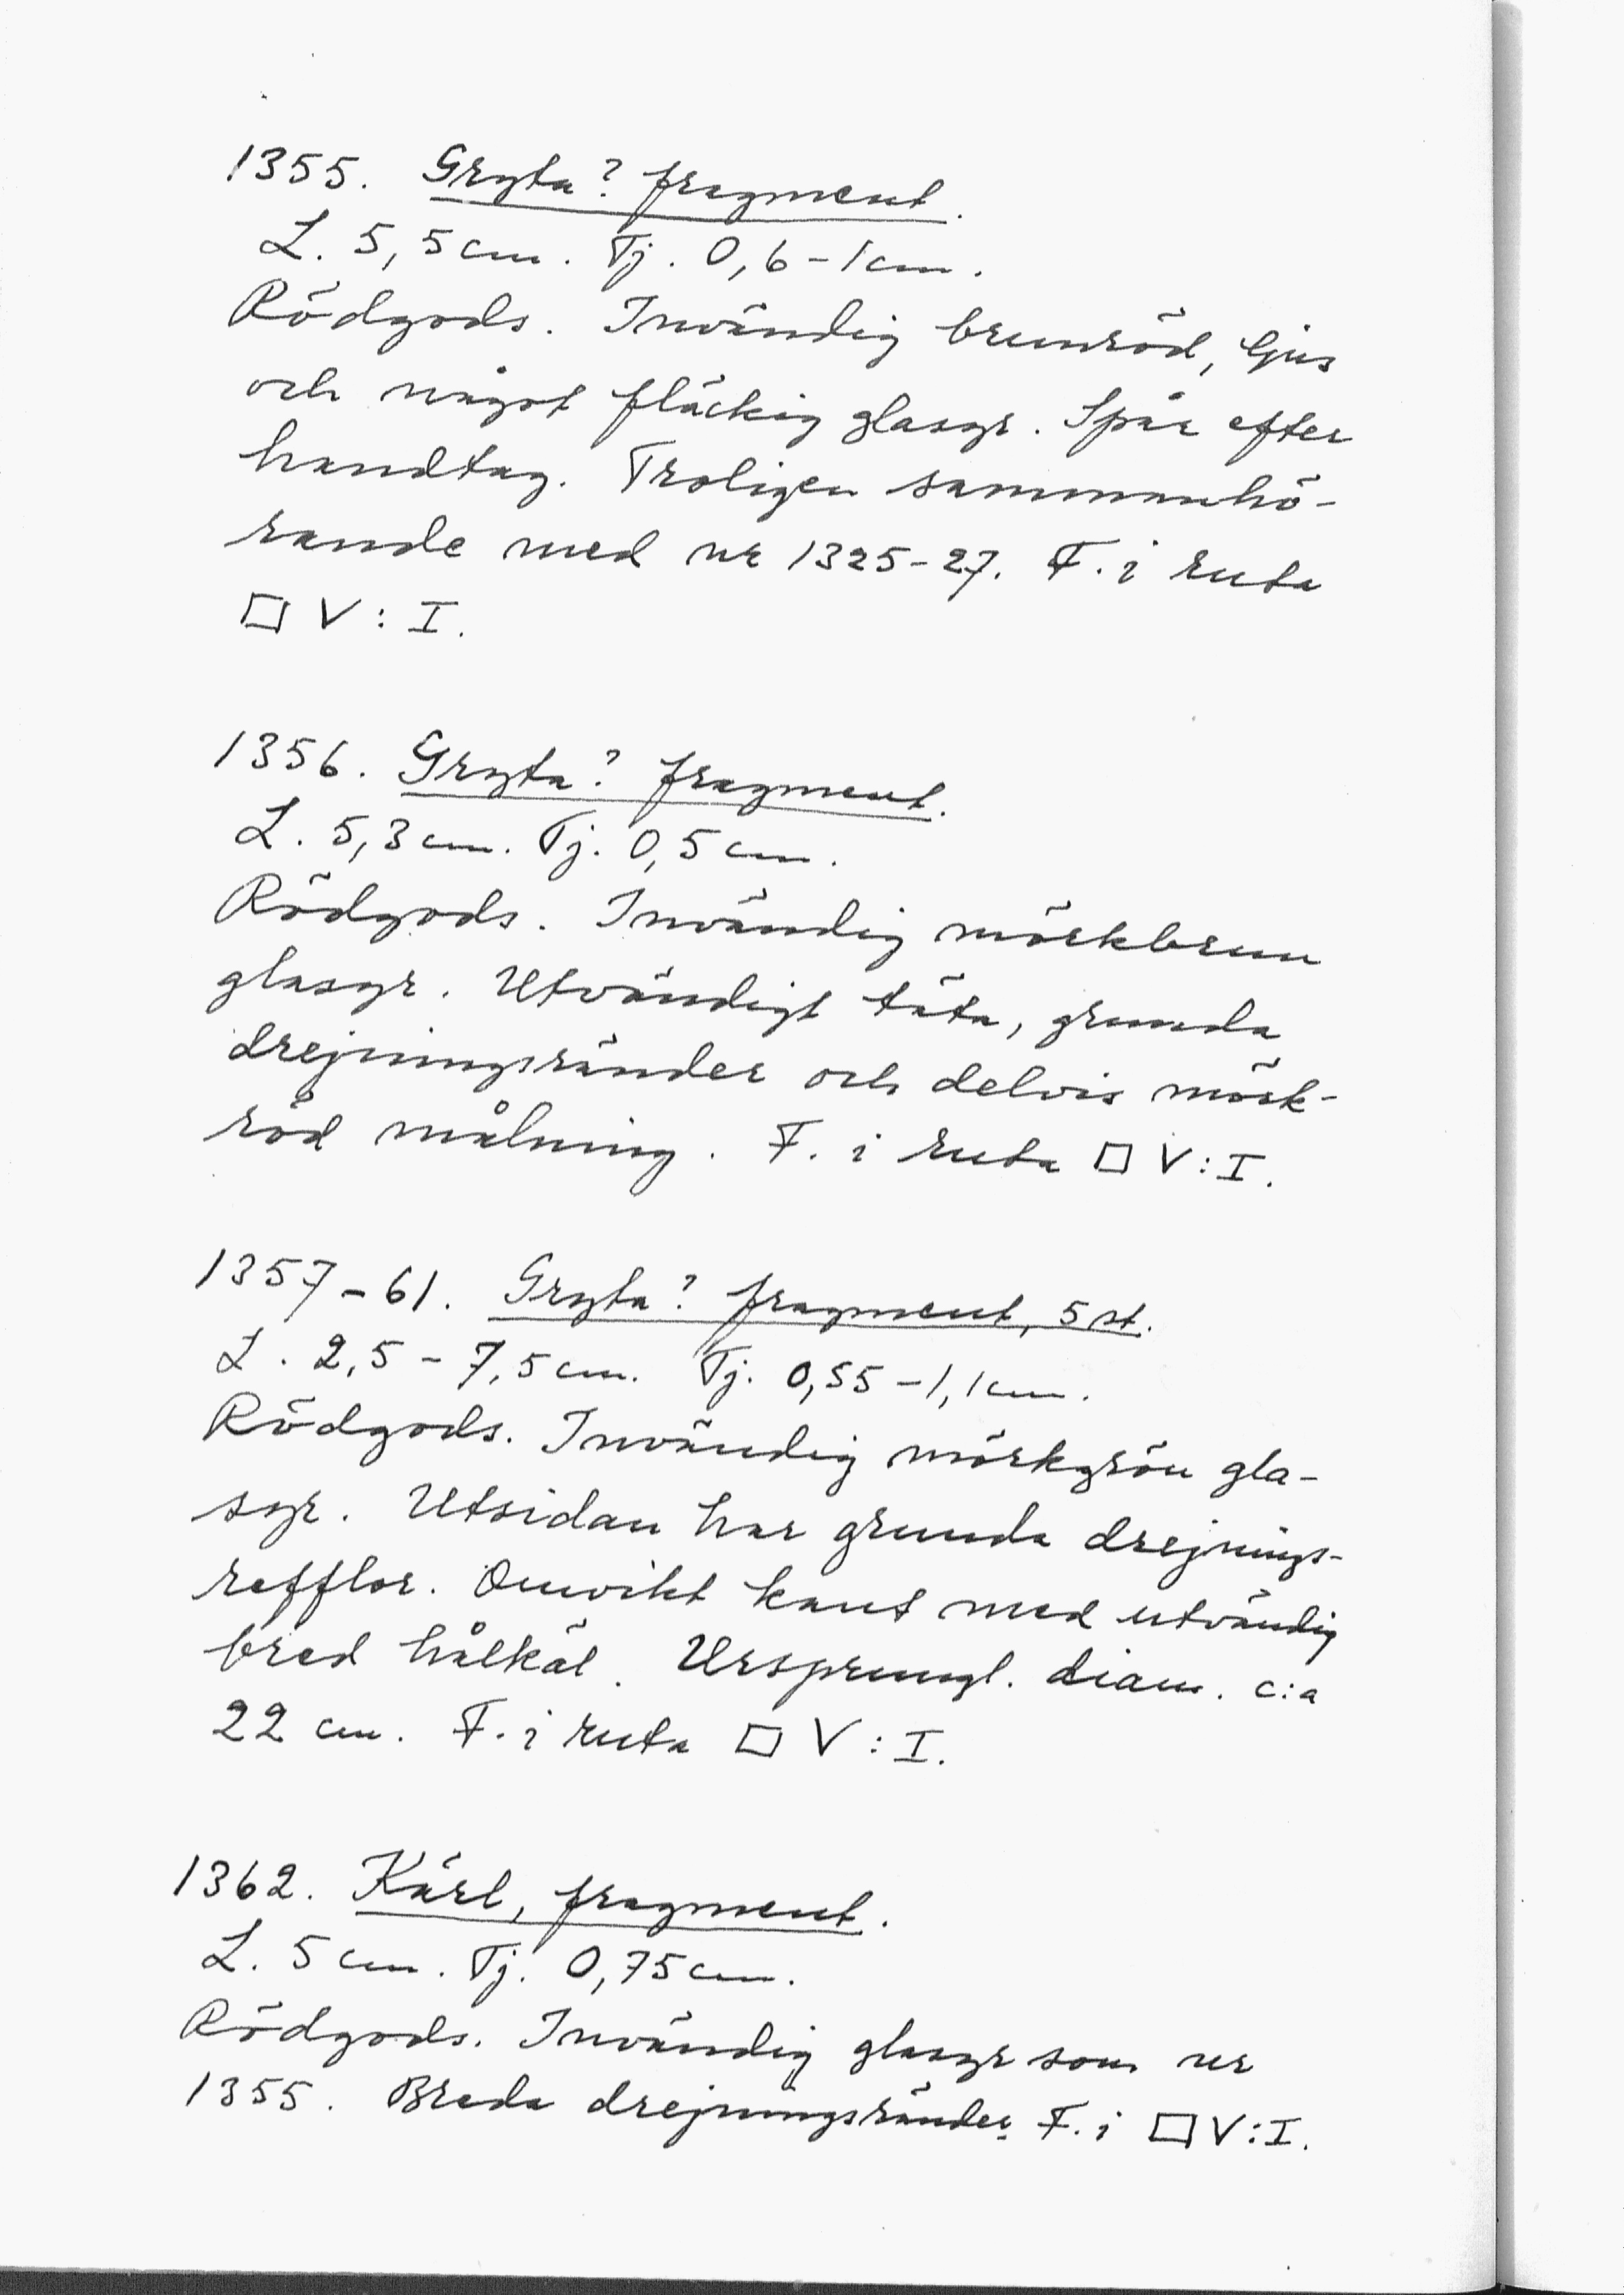 1355. Gryta? fragment.
L. 5,5 cm. Tj. 0,6-1 cm.
Rödgods. Invändig brunröd, ljus
och något fläckig glasyr. Spår efter
handtag. Troligen sammanhö-
rande med nr 1325-27. F. i ruta
□ V:I.
1356. Gryta? fragment.
L. 5,3 cm. Tj. 0,5 cm.
Rödgods. Invändig mörkbrun
glasyr. Utvändigt täta, grunda
drejningsränder och delvis mörk-
röd målning. F. i ruta □ V:I.
1357-61. Gryta? fragment, 5 st.
L. 2,5-7,5 cm. Tj. 0,55-1,1 cm.
Rödgods. Invändig mörkgrön gla-
syr. Utsidan har grunda drejnings-
refflor. Omvikt kant med utvändig
bred hålkäl. Ursprungl. diam. c:a
22 cm. F. i ruta □ V:I.
1362. Kärl, fragment.
L. 5 cm. Tj. 0,75 cm.
Rödgods. Invändig glasyr som nr
1355. Breda drejningsränder. F. i □ V:I.